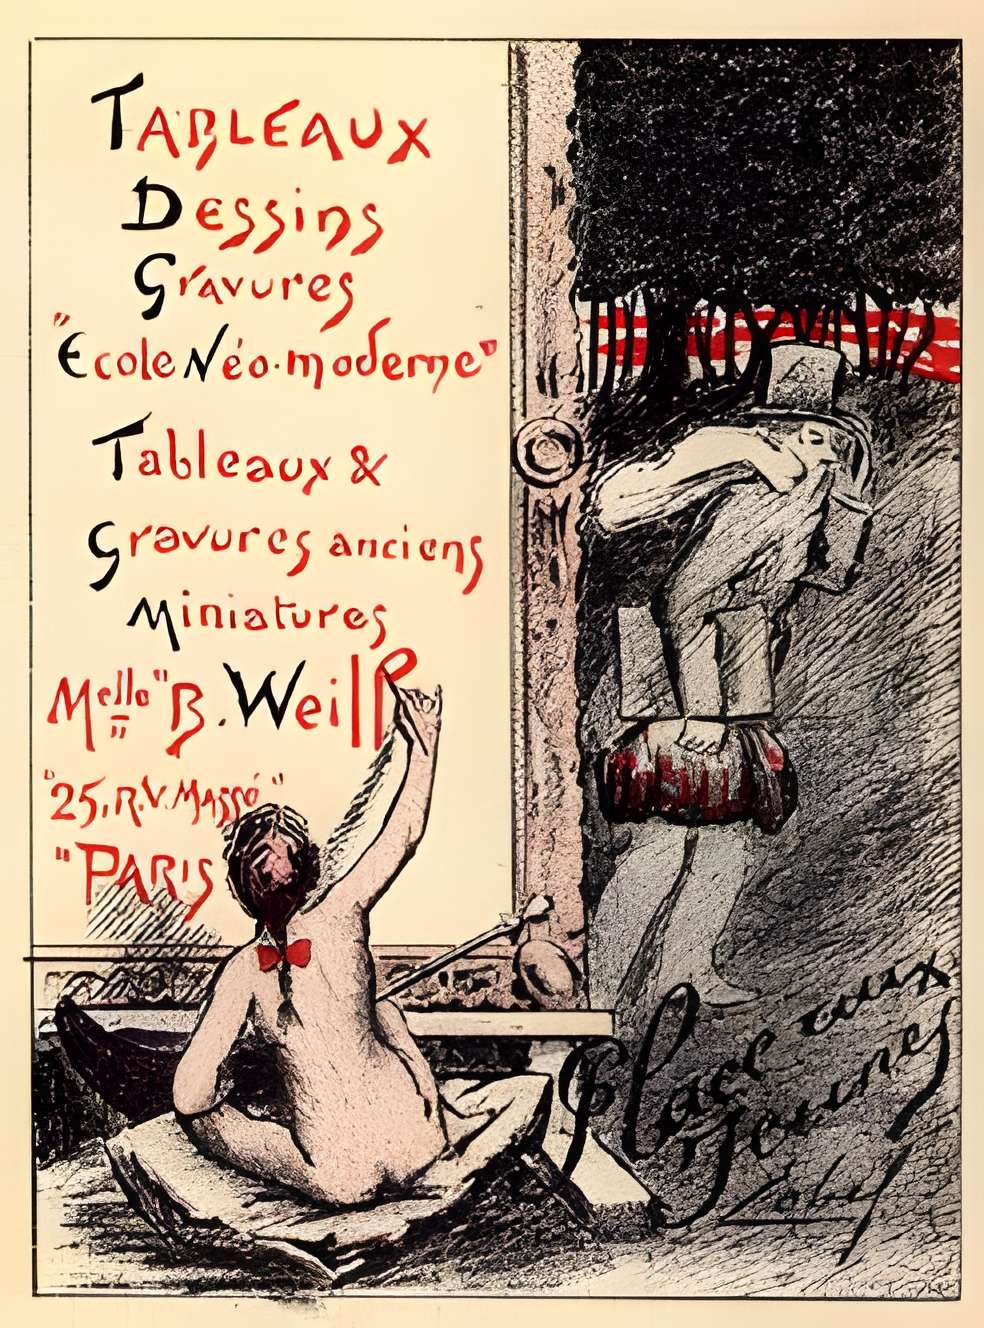 TABLEAUX
Dessins
Gravures
"École Néo-moderne"
Tableaux &
Gravures anciens
Miniatures
Melle" B. Weill
"25, R. V. MASSÉ"
"PARIS
Place aux
Jeunes